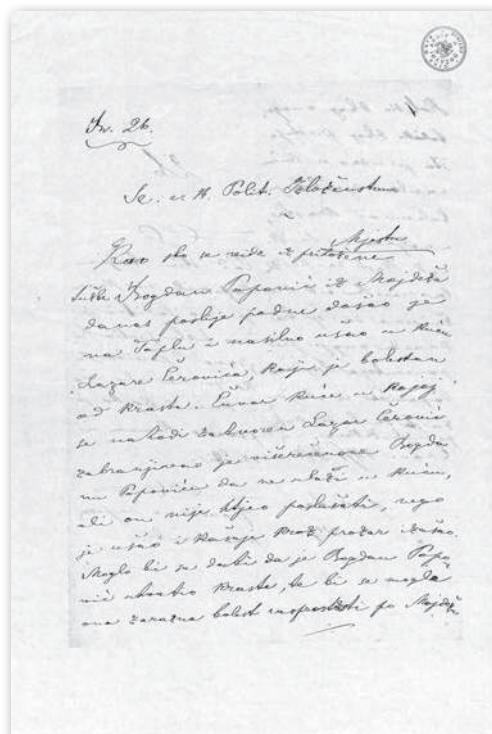 Nr. 26.
Sl. C. K. Polit. Izloženstvu
Mjestu
Kao što se vidi iz priložene
tužbe Bogdan Popović iz Mojdeža
danas poslije podne došao je
na Toplu i nasilno ušao u kuću
Lazara Čerovića koji je bolestan
od krasta. Čuvar kuće u kojoj
se nahodi zatvoren Lazar Čerović
zabranjivao je višerečenome Bogda
nu Popoviću da ne ulazi u kuću,
ali on nije htjeo poslušati, nego
je ušao i kasnije kroz prozor izašao.
Moglo bi se dati da je Bogdan Popo
vić krasta, te bi se mogla
ona zarazna bolest rasprostrti po Mojdežu